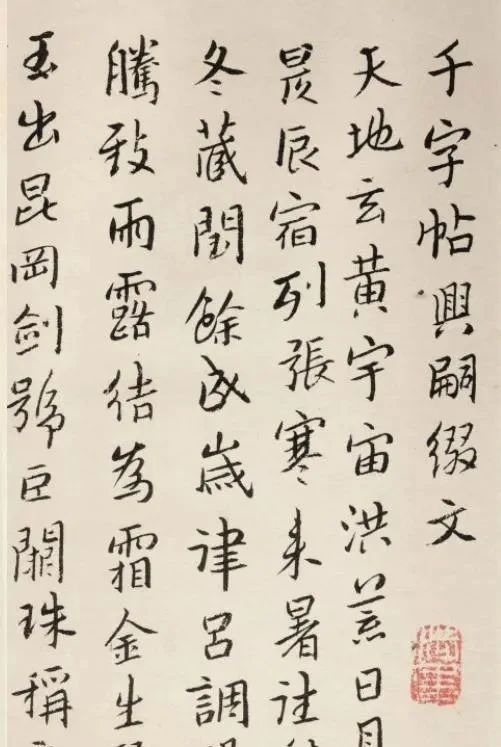 千字帖興嗣綴文
天地玄黄宇宙洪荒日月
昃辰宿列張寒来暑往
冬藏閏餘成歲律呂調
騰致雨露結為霜金生
玉出昆岡劍號巨闕珠稱